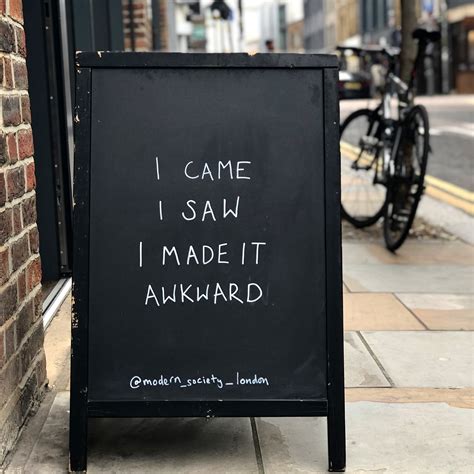 I CAME
I SAW
I MADE IT
AWKWARD
@modern_society_london